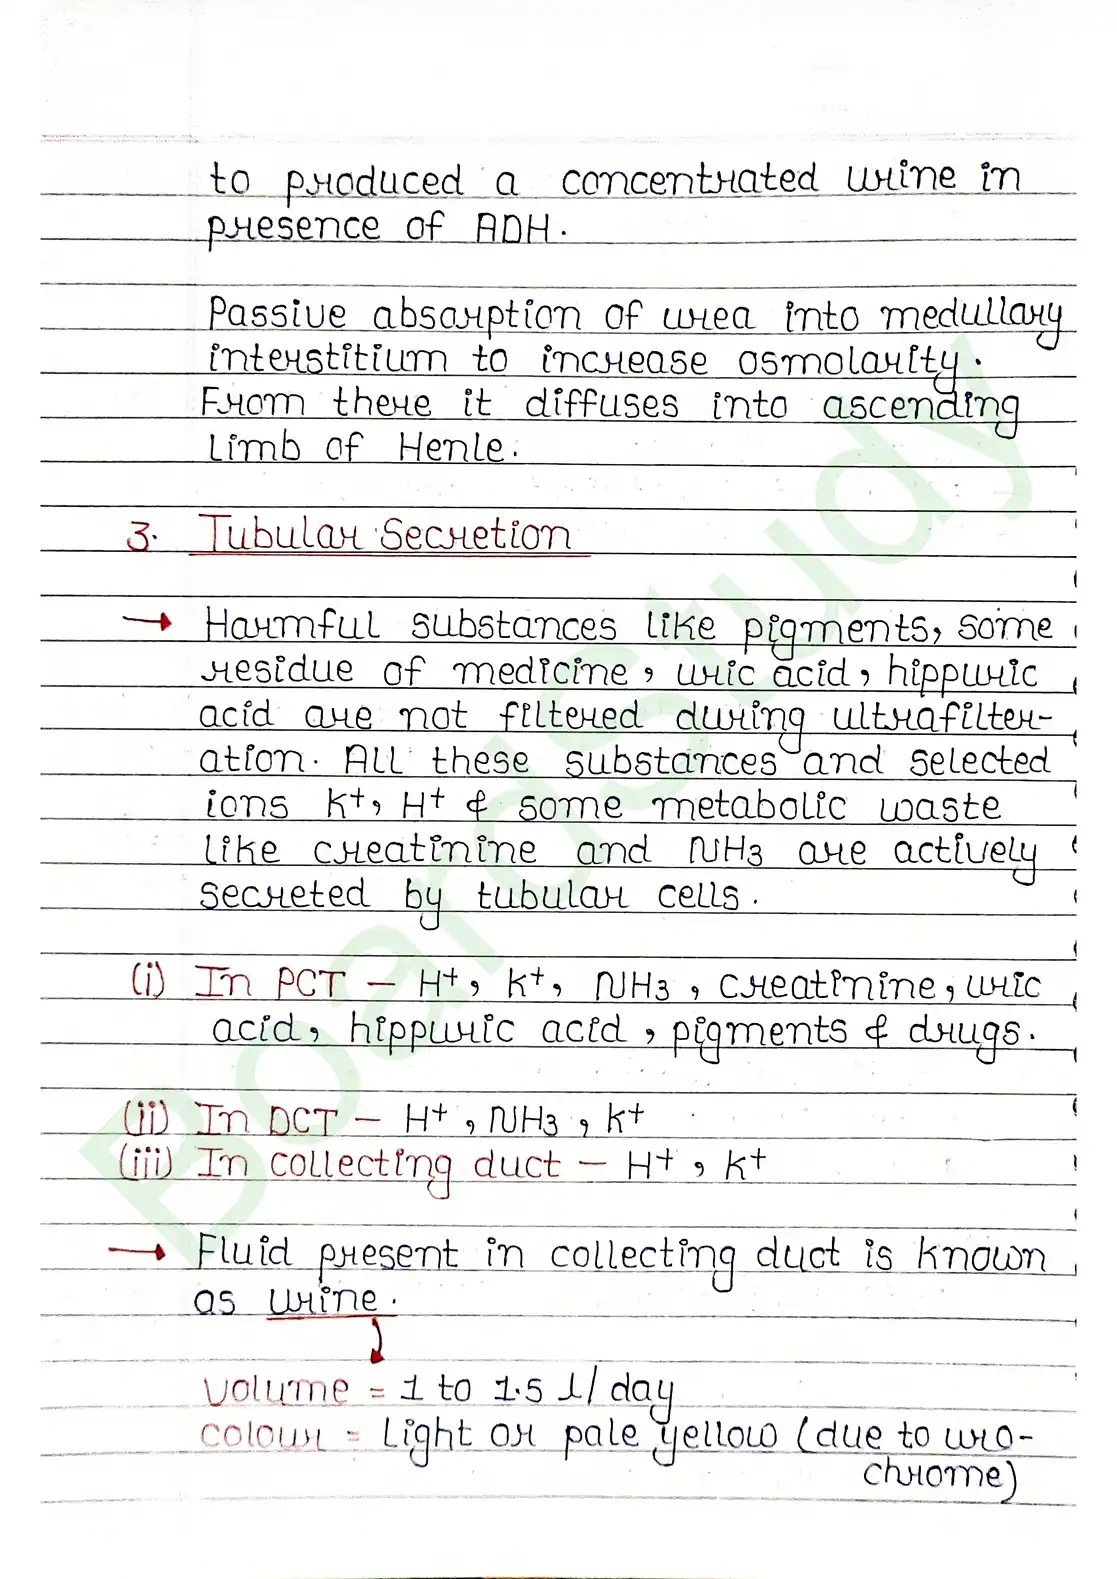 to produced a concentrated urine in
presence of ADH.
Passive absorption of urea into medullary
interstitium to increase osmolarity.
From there it diffuses into ascending
limb of Henle.
3. Tubular Secretion
→ Harmful substances like pigments, some
residue of medicine, uric acid, hippuric
acid are not filtered during ultrafilter-
ation. All these substances and selected
ions K+, H+ & some metabolic waste
like creatinine and NH3 are actively
secreted by tubular cells.
(i) In PCT – H+, K+, NH3, creatinine, uric
acid, hippuric acid, pigments & drugs.
(ii) In DCT – H+, NH3, K+
(iii) In collecting duct – H+, K+
→ Fluid present in collecting duct is known
as urine.
volume = 1 to 1.5 l/day
colour = Light or pale yellow (due to uro-
chrome)
Boardstudy